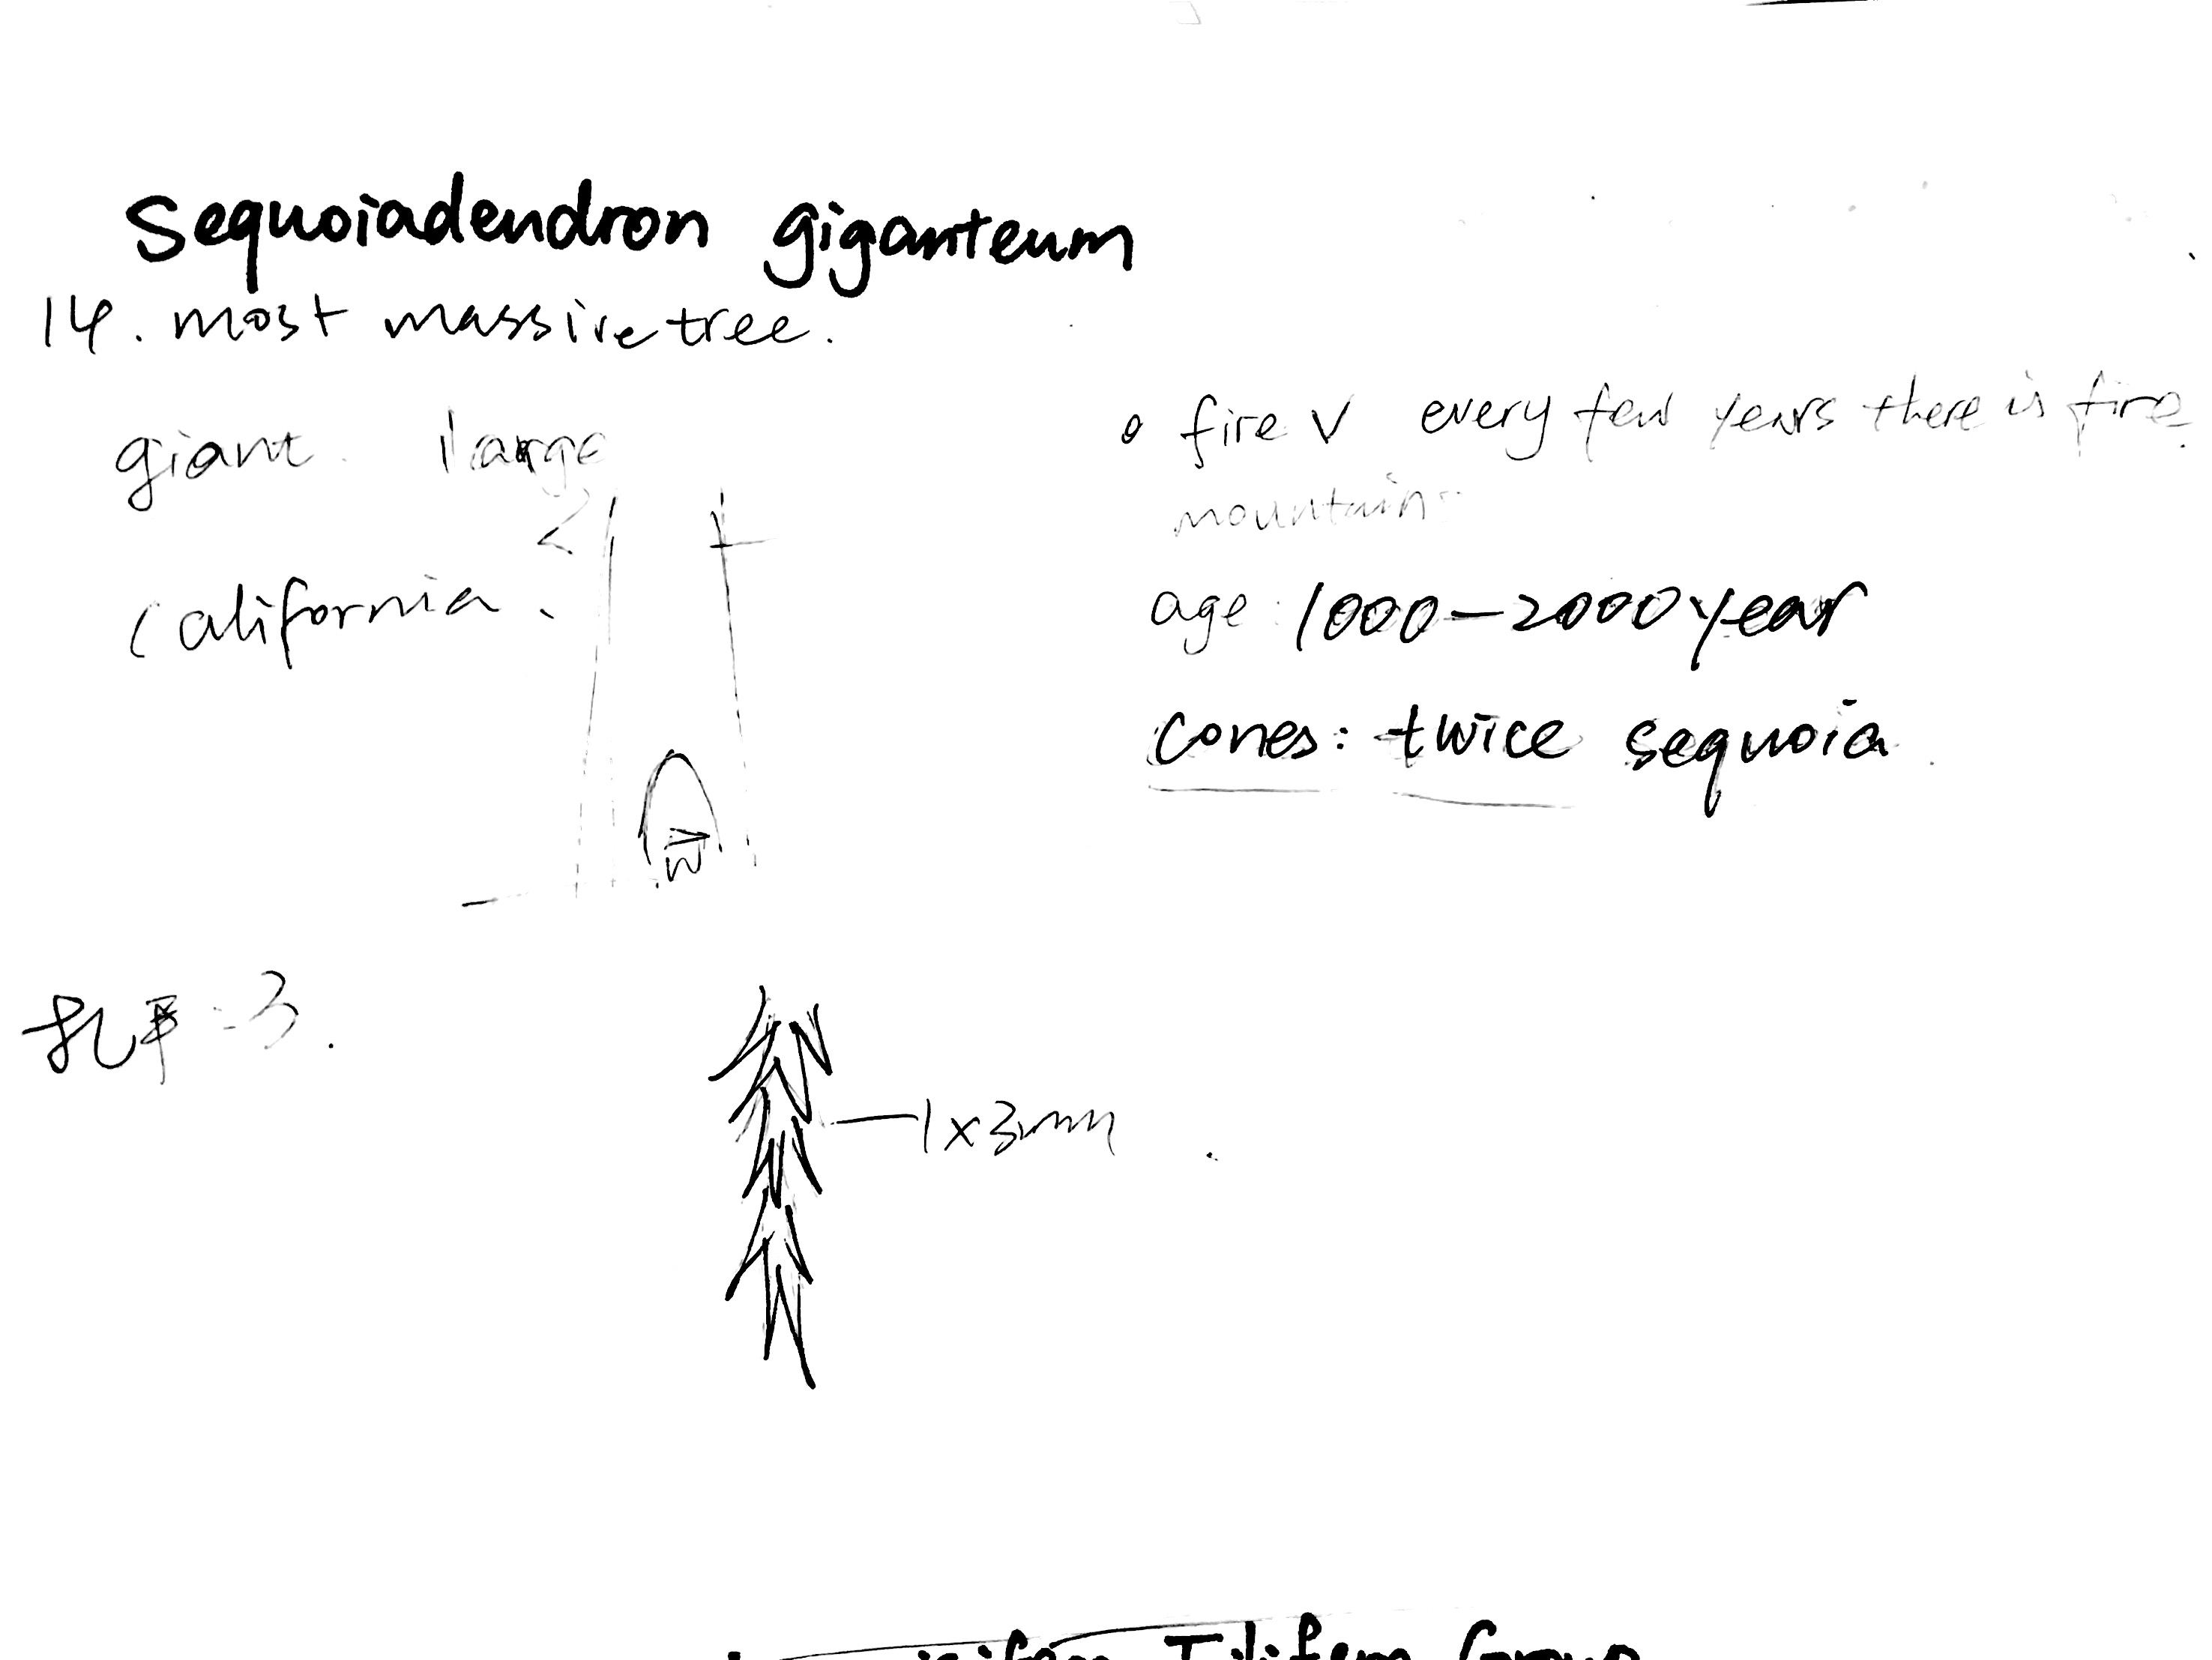 Sequoiadendron giganteum
14. most massive tree.
giant. large
California.
o fire V every few years there is fire.
mountain
age: 1000-2000 year
cones: twice sequoia.
扎手
1x3mm
Group